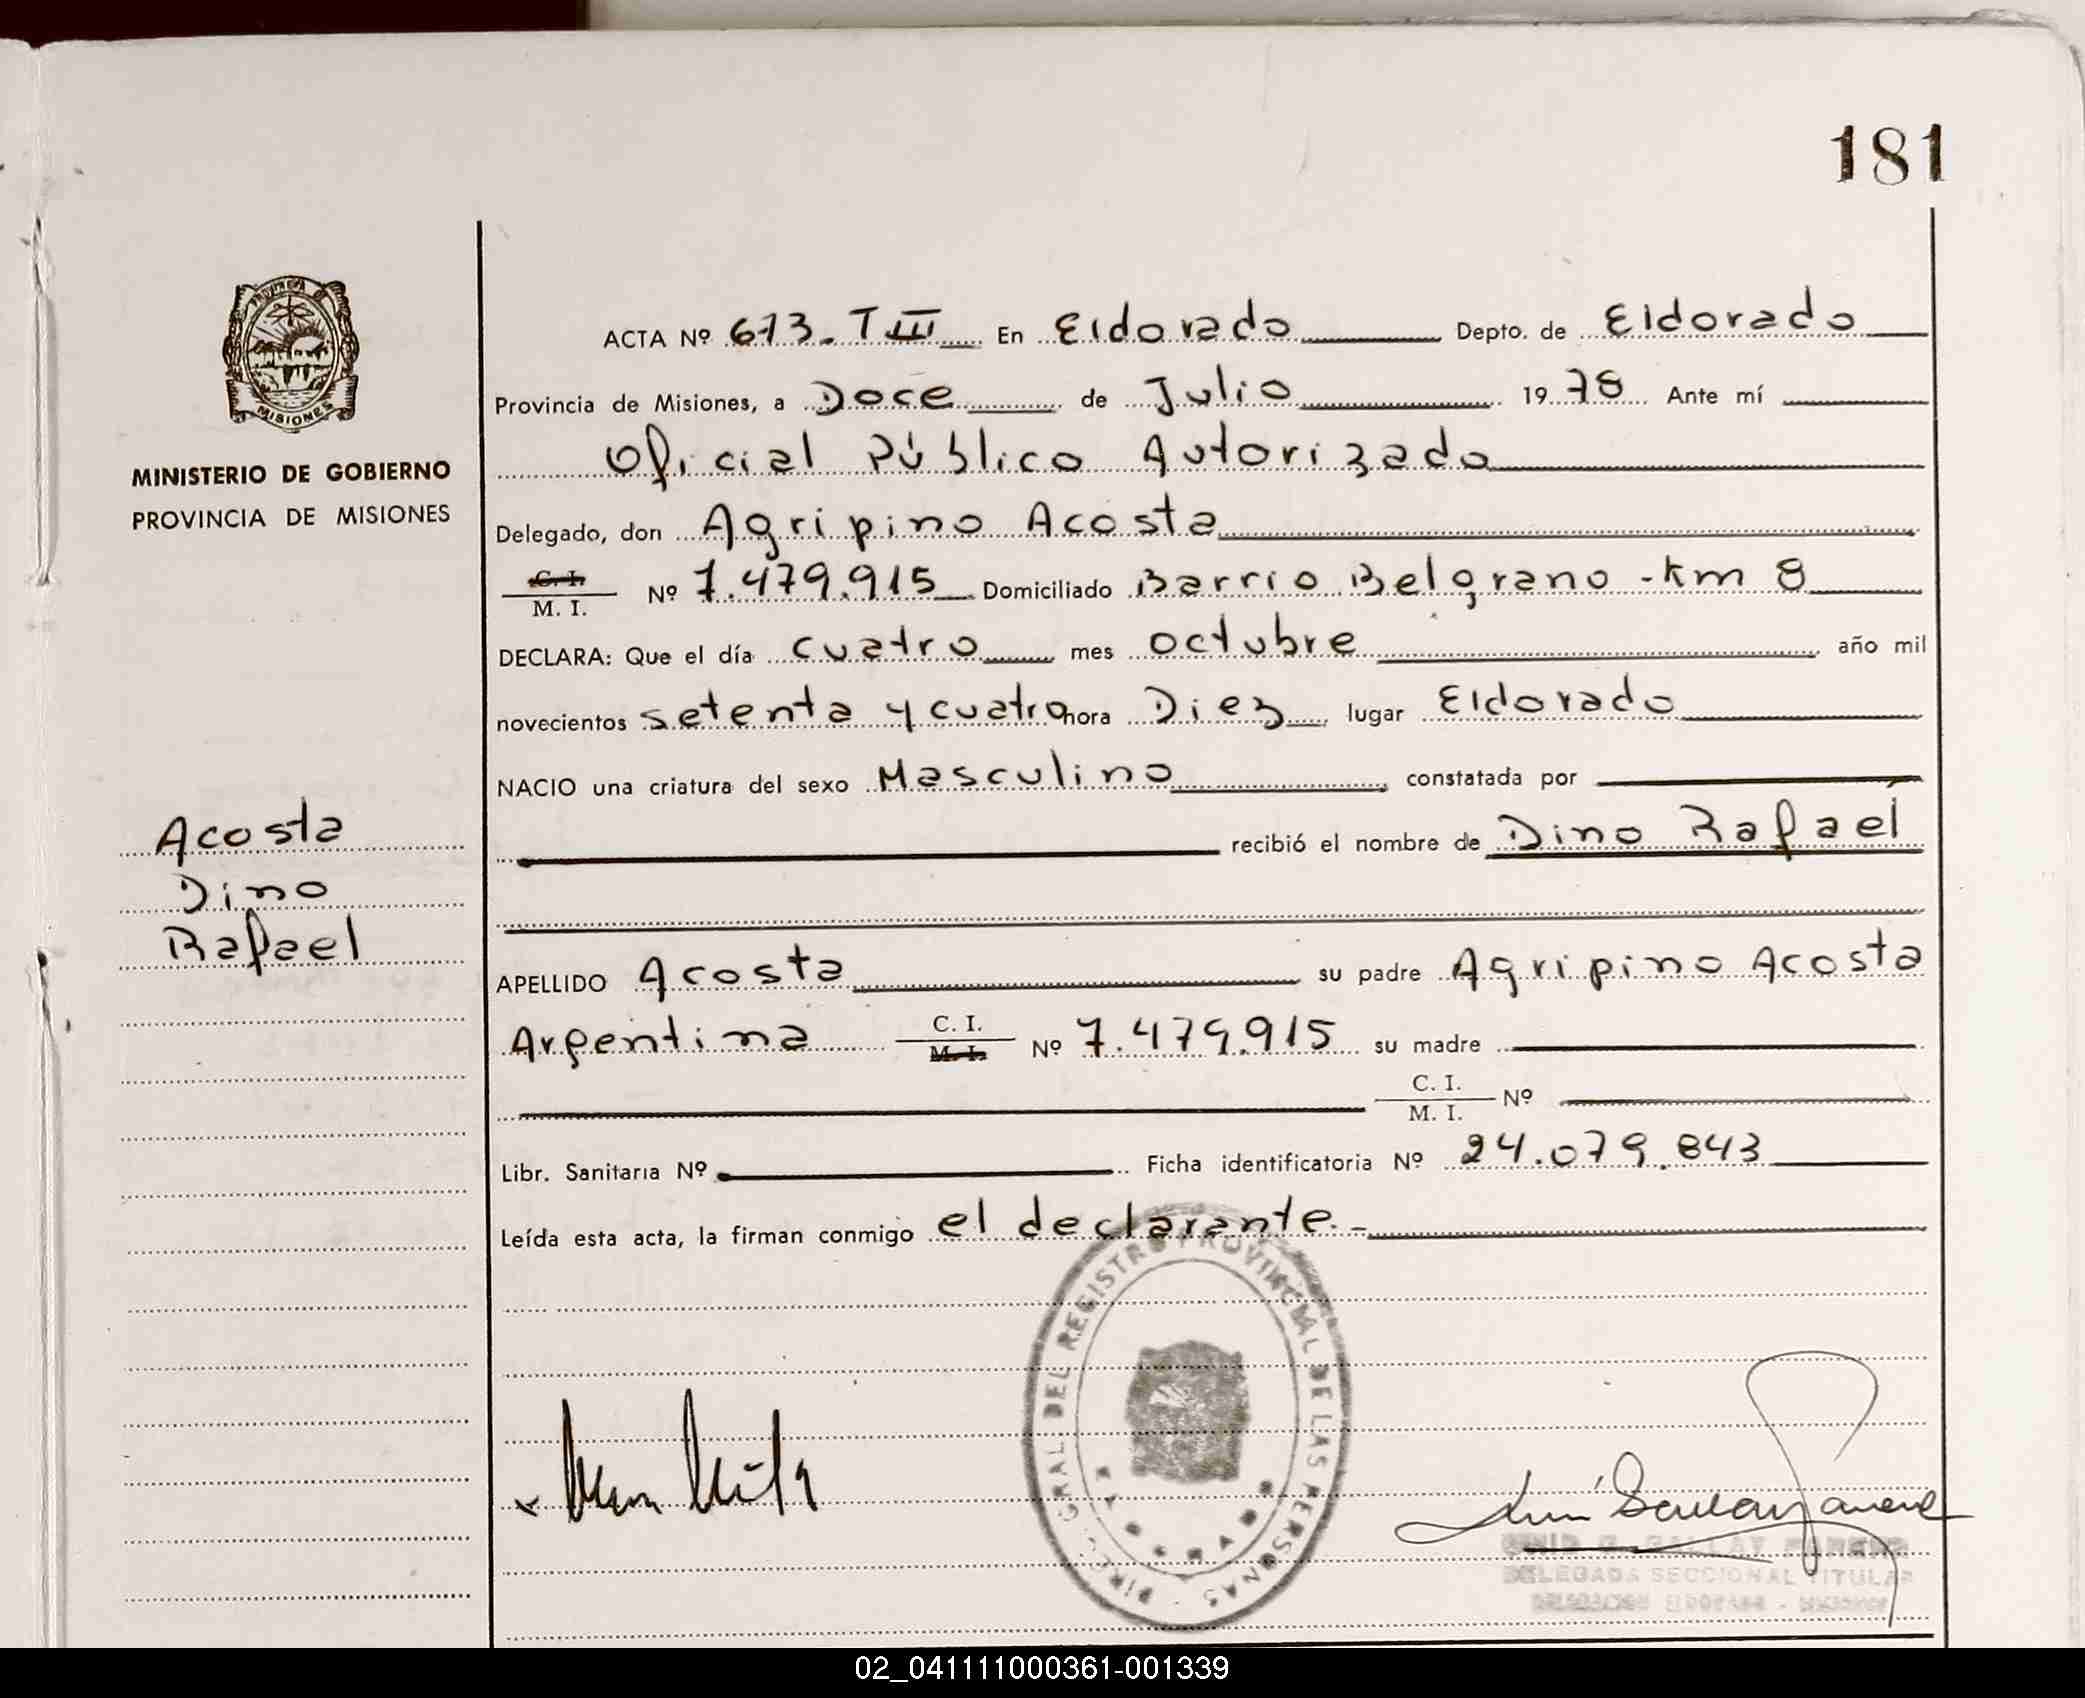 181
PROVINCIA D
MISIONES
MINISTERIO DE GOBIERNO
PROVINCIA DE MISIONES
Acosta
Dino
Rafael
ACTA Nº 673. T III En Eldorado Depto. de Eldorado
Provincia de Misiones, a Doce de Julio 1978 Ante mí
Oficial Público Autorizado
Delegado, don Agripino Acosta
C. I.
M. I. Nº 7.479.915 Domiciliado Barrio Belgrano - km 8
DECLARA: Que el día cuatro mes octubre año mil
novecientos setenta y cuatro hora Diez lugar Eldorado
NACIO una criatura del sexo Masculino constatada por
recibió el nombre de Dino Rafael
APELLIDO Acosta su padre Agripino Acosta
Argentina C. I. Nº 7.479.915 su madre
M. I.
C. I. Nº
M. I.
Libr. Sanitaria Nº Ficha identificatoria Nº 24.079.843
Leída esta acta, la firman conmigo el declarante.-
DIREC. GRAL. DEL REGISTRO PROVINCIAL DE LAS PERSONAS
G. GALLAY
DELEGADA SECCIONAL TITULAR
DELEGACION ELDORADO - MISIONES
02_041111000361-001339